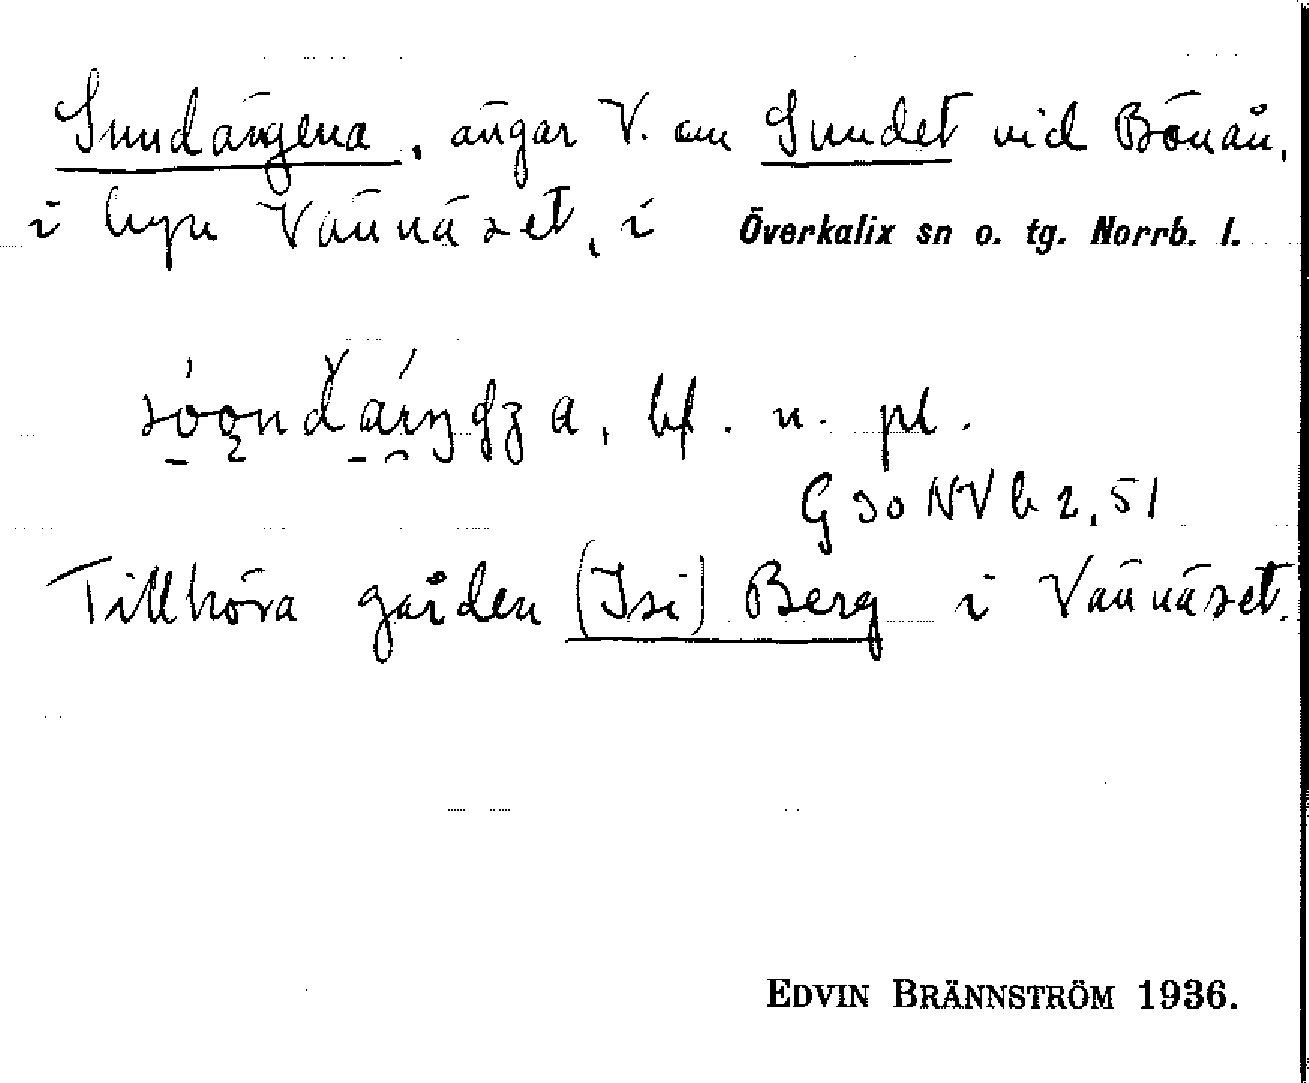 Sundängena, ängar V. om Sundet vid Bönån,
i byn Vännäset, i Överkalix sn o. tg. Norrb. l.
bf. n. pl.
G 30 NV b 2, 51
Tillhöra gården (Isi) Berg i Vännäset.
EDVIN BRÄNNSTRÖM 1936.